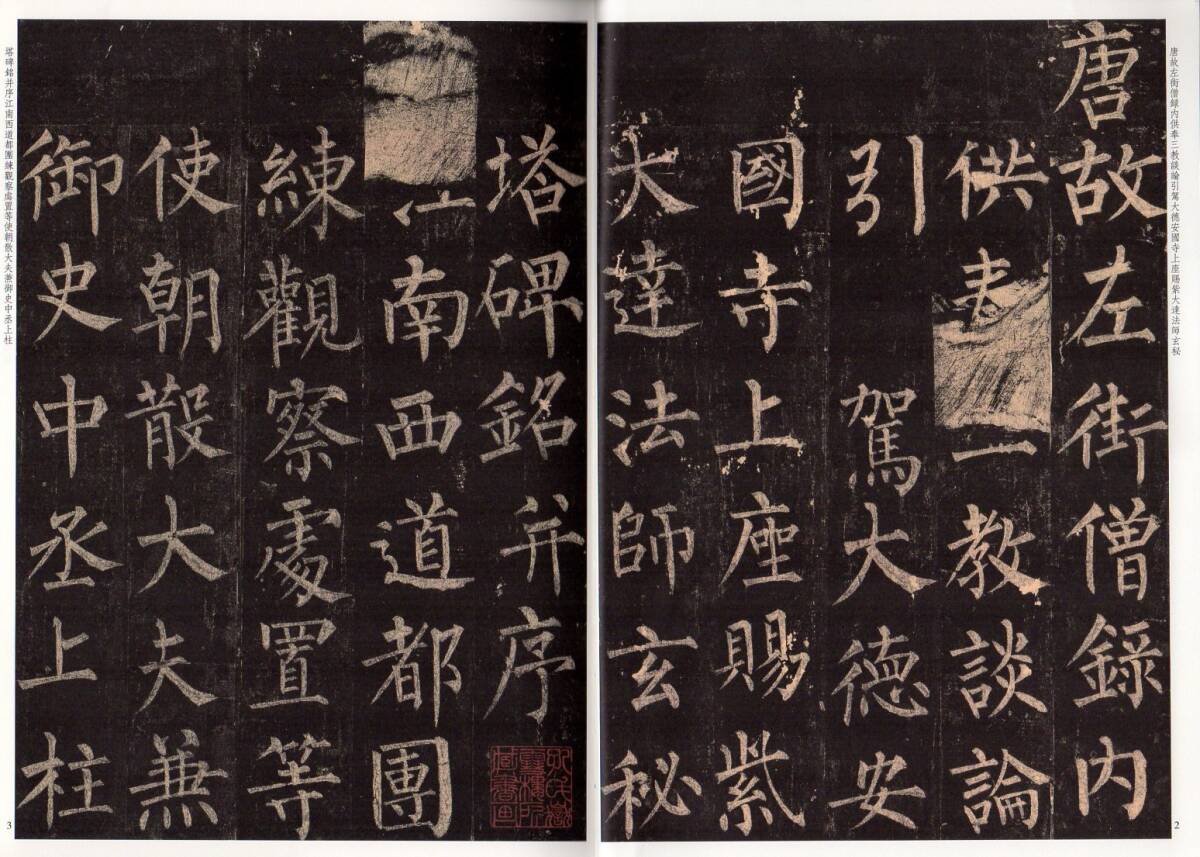 唐故左街僧録内供奉三教談論引駕大德安國寺上座賜紫大達法師玄秘
唐故左街僧錄内
供奉三教談論
引駕大德安
國寺上座賜紫
大達法師玄秘
2
塔碑銘并序
江南西道都團
練觀察處置等
使朝散大夫兼
御史中丞上柱
塔碑銘并序江南西道都團練觀察處置等使朝散大夫兼御史中丞上柱
3